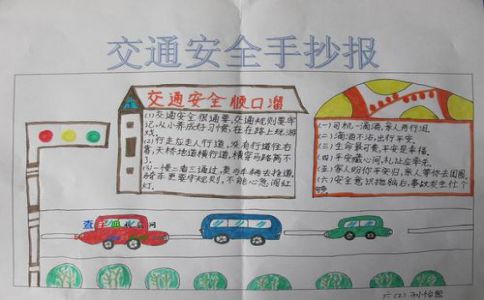 交通安全手抄报
交通安全顺口溜
(1)交通安全很重要,交通规则要牢
记,从小养成好习惯,在在路上玩游
戏。
(2)行走应走人行道,没有行道往右
靠,天桥地道横行道,横穿马路离不
了。
(3)一慢二看三通过,莫与车辆去抢道
骑车更要守规则,不能心急,闯红
灯。
(一)司机一滴酒,家人两行泪。
(二)滴酒不沾,出行平安。
(三)生命最可贵,平安是幸福。
(四)平安藏心间,礼让后牵来
(五)家人盼你平安归,家人等你去团圆
(六)安全意识抛脑后,事故发生
查字典
六(2)